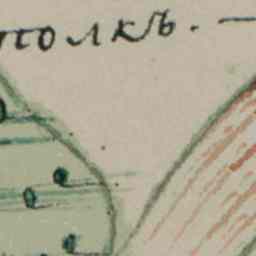 толкъ. —